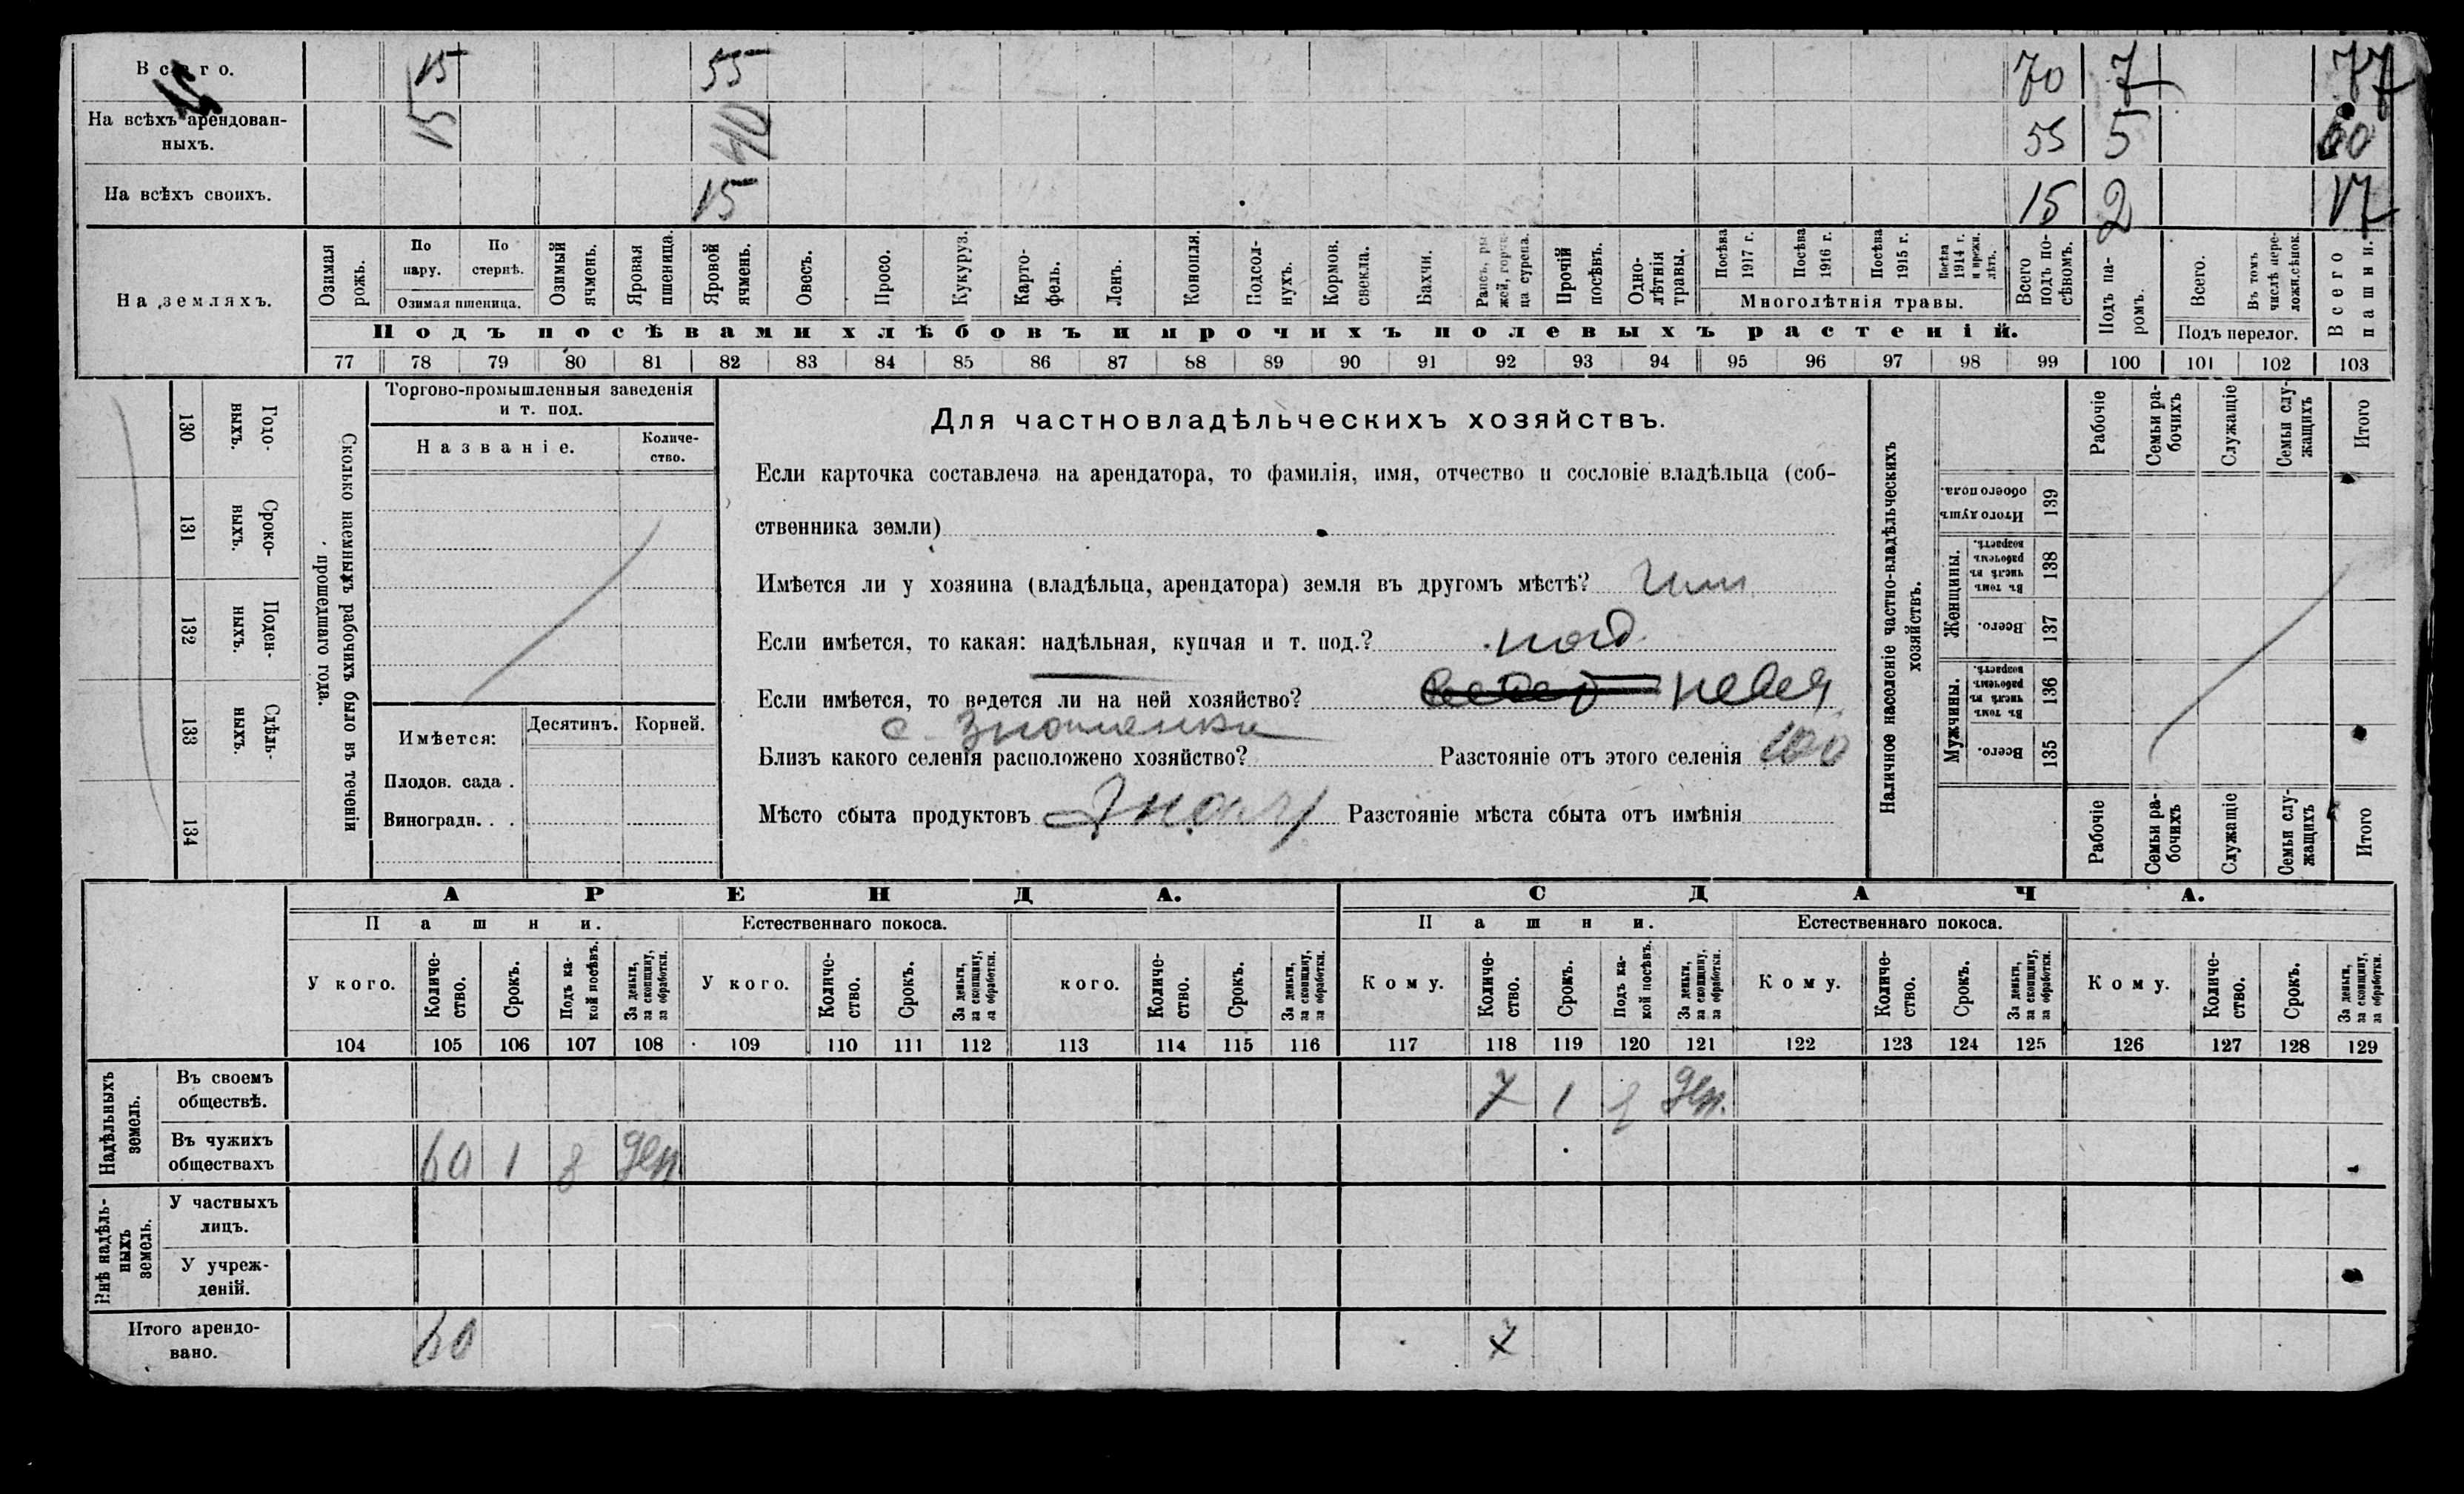 Всего. 15 55 70 7 77
На всѣхъ арендован-
ныхъ. 15 40 55 5 60
На всѣхъ своихъ. 15 15 2 17
На земляхъ.
Озимая рожь.
По пару.
По стернѣ.
Озимая пшеница.
Озимый ячмень.
Яровая пшеница.
Яровой ячмень.
Овесъ.
Просо.
Кукуруз.
Карто-
фель.
Ленъ.
Конопля.
Подсол-
нухъ.
Кормов.
свекла.
Бахчи.
Рапсъ, ры
жей, горчи
ца сурепа.
Прочій
посѣвъ.
Одно-
лѣтнія
травы.
Посѣва 1917 г.
Посѣва 1916 г.
Посѣва 1915 г.
Посѣва 1914 г. и прежн. лѣтъ.
Многолѣтнія травы.
Всего
подъ по-
сѣвомъ.
Подъ па-
ромъ.
Всего.
Въ томъ
числѣ пере-
ложн.сѣнок.
Подъ перелог.
Всего
пашни.
Подъ посѣвами хлѣбовъ и прочихъ полевыхъ растеній.
77 78 79 80 81 82 83 84 85 86 87 88 89 90 91 92 93 94 95 96 97 98 99 100 101 102 103
130 Годо-
выхъ.
131 Сроко-
выхъ.
132 Поден-
ныхъ.
133 Сдѣль-
ныхъ.
134
Сколько наемныхъ рабочихъ было въ теченіи
прошедшаго года.
Торгово-промышленныя заведенія
и т. под.
Названіе.
Количе-
ство.
Имѣется:
Десятинъ.
Корней.
Плодов. сада .
Виноградн. . .
Для частновладѣльческихъ хозяйствъ.
Если карточка составлена на арендатора, то фамилія, имя, отчество и сословіе владѣльца (соб-
ственника земли)
Имѣется ли у хозяина (владѣльца, арендатора) земля въ другомъ мѣстѣ?
Если имѣется, то какая: надѣльная, купчая и т. под.? над.
Если имѣется, то ведется ли на ней хозяйство?
с. Знаменка
Близъ какого селенія расположено хозяйство? Разстояніе отъ этого селенія 100
Мѣсто сбыта продуктовъ Разстояніе мѣста сбыта отъ имѣнія
Наличное населеніе частно-владѣльческихъ
хозяйствъ.
Итого душъ
обоего пола. 139
Женщины.
Въ томъ
числѣ въ
рабочемъ
возрастѣ. 138
Всего. 137
Мужчины.
Въ томъ
числѣ въ
рабочемъ
возрастѣ. 136
Всего. 135
Рабочіе
Семьи ра-
бочихъ
Служащіе
Семьи слу-
жащихъ
Итого
Рабочіе
Семьи ра-
бочихъ
Служащіе
Семьи слу-
жащихъ
Итого
АРЕНДА. СДАЧА.
Пашни. Естественнаго покоса. Пашни. Естественнаго покоса.
У кого.
Количе-
ство.
Срокъ.
Подъ ка-
кой посѣвъ.
За деньги,
за скопщину,
за обработки.
У кого.
Количе-
ство.
Срокъ.
За деньги,
за скопщину,
за обработки.
кого.
Количе-
ство.
Срокъ.
За деньги,
за скопщину,
за обработки.
Кому.
Количе-
ство.
Срокъ.
Подъ ка-
кой посѣвъ.
За деньги,
за скопщину,
за обработки.
Кому.
Количе-
ство.
Срокъ.
За деньги,
за скопщину,
за обработки.
Кому.
Количе-
ство.
Срокъ.
За деньги,
за скопщину,
за обработки.
104 105 106 107 108 109 110 111 112 113 114 115 116 117 118 119 120 121 122 123 124 125 126 127 128 129
Надѣльныхъ
земель.
Въ своемъ
обществѣ. 7 1 Ден.
Въ чужихъ
обществахъ 60 1 8 Ден
Внѣ надѣль-
ныхъ
земель.
У частныхъ
лицъ.
У учреж-
деній.
Итого арендо-
вано. 60 7